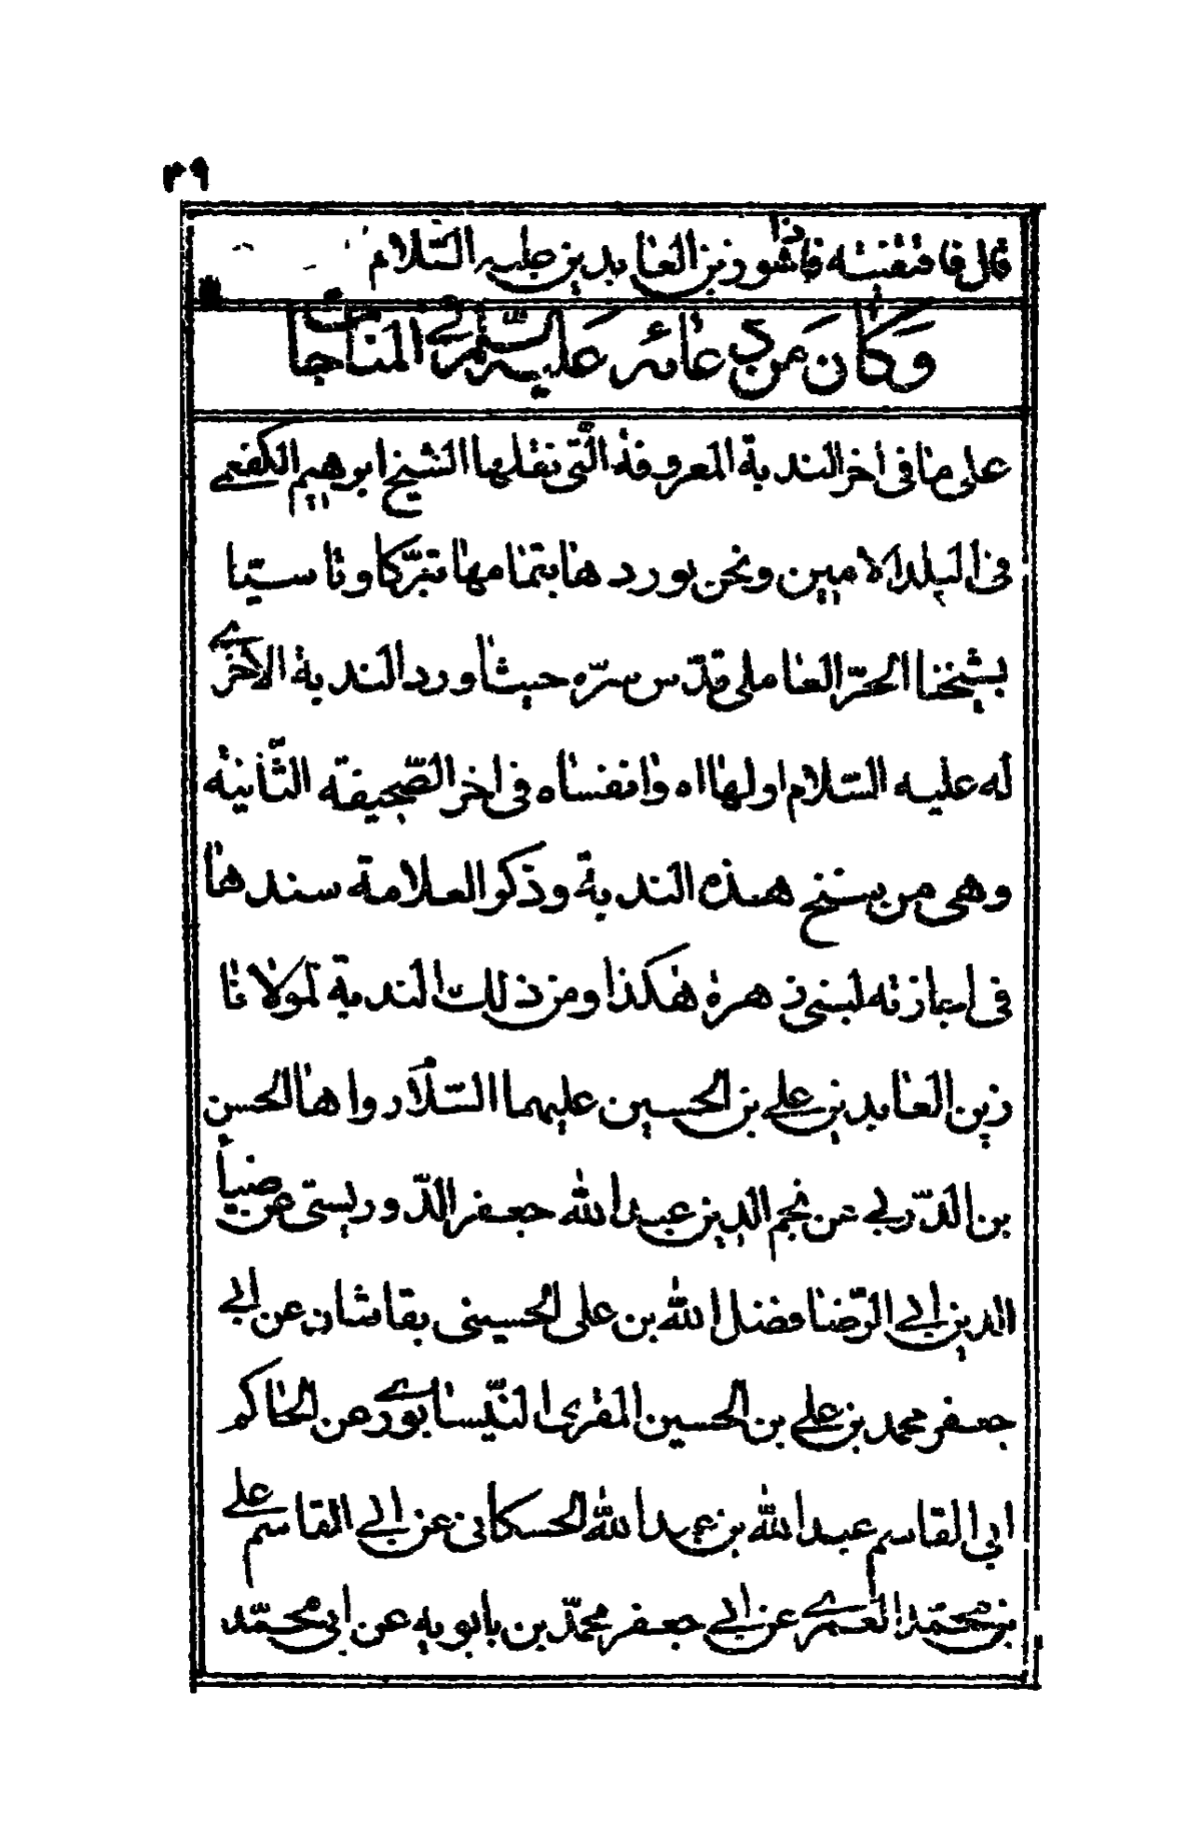 ۳۹
قال فاقتفيته فاذا هو زين العابدين عليه السلام
وكان من دعائه عليه السلام في المناجات
على ما فى اخر الندبة المعروفة الّتى نقلها الشيخ ابرهيم الكفعمي
فى البلد الامين ونحن نوردها بتمامها تبرّكا وتاسّيا
بشيخنا الحرّ العاملى قدّس سرّه حيث اورد الندبة الاخرى
له عليه السّلام اولها اه وانفساه فى اخر الصّحيفة الثّانية
وهى من سنخ هذه الندبة وذكر العلامة سندها
فى اجازته لبنى زهرة هكذا ومن ذلك الندبة لمولانا
زين العابدين علي بن الحسين عليهما السّلام رواها الحسن
بن الدّربي عن نجم الدين عبد الله جعفر الدّوريستى عن ضياء
الدين ابي الرّضا فضل الله بن على الحسينى بقاشان عن ابي
جعفر محمد بن علي بن الحسين المقرى النّيسابوري عن الحاكم
ابى القاسم عبد الله بن عبيد الله الحسكانى عن ابي القاسم علي
بن محمّد العمري عن ابي جعفر محمّد بن بابويه عن ابى محمّد